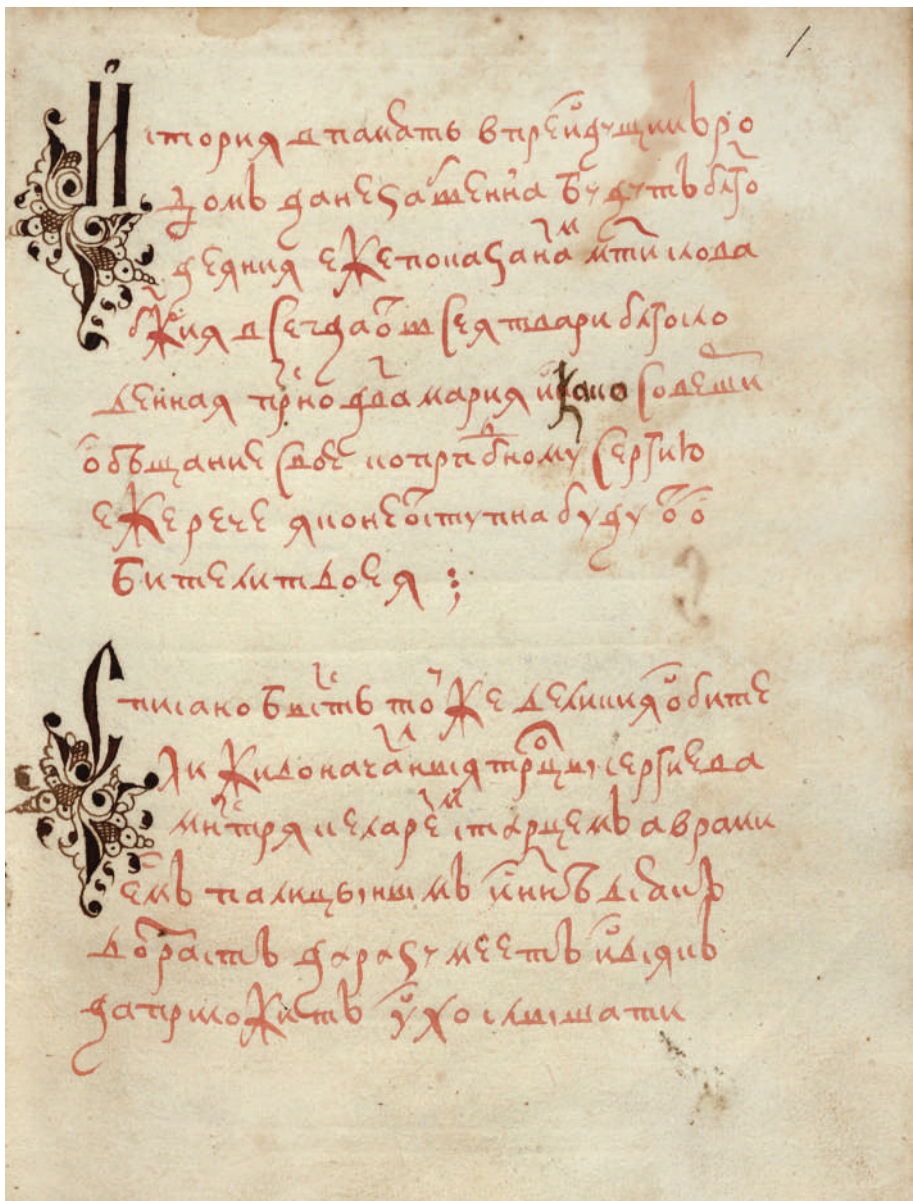 1
История в память впреидущимъ ро
домъ да не забвенна будутъ блго
деяния еже показа намъ мти слова
бжия всегда от всея твари блгосло
венная прсно два мария и како соверши
обѣщание свое к прпдбному Сергию
еже рече яко неотступна буду от о
бители твоея
Списано бысть тоя же великия обите
ли живоначалныя трцы сергиева
мнстря келарем старцемъ аврами
емъ палицынымъ и ннѣ всякъ
возрастъ да разумеетъ и всякъ
да приложитъ ухо слышати